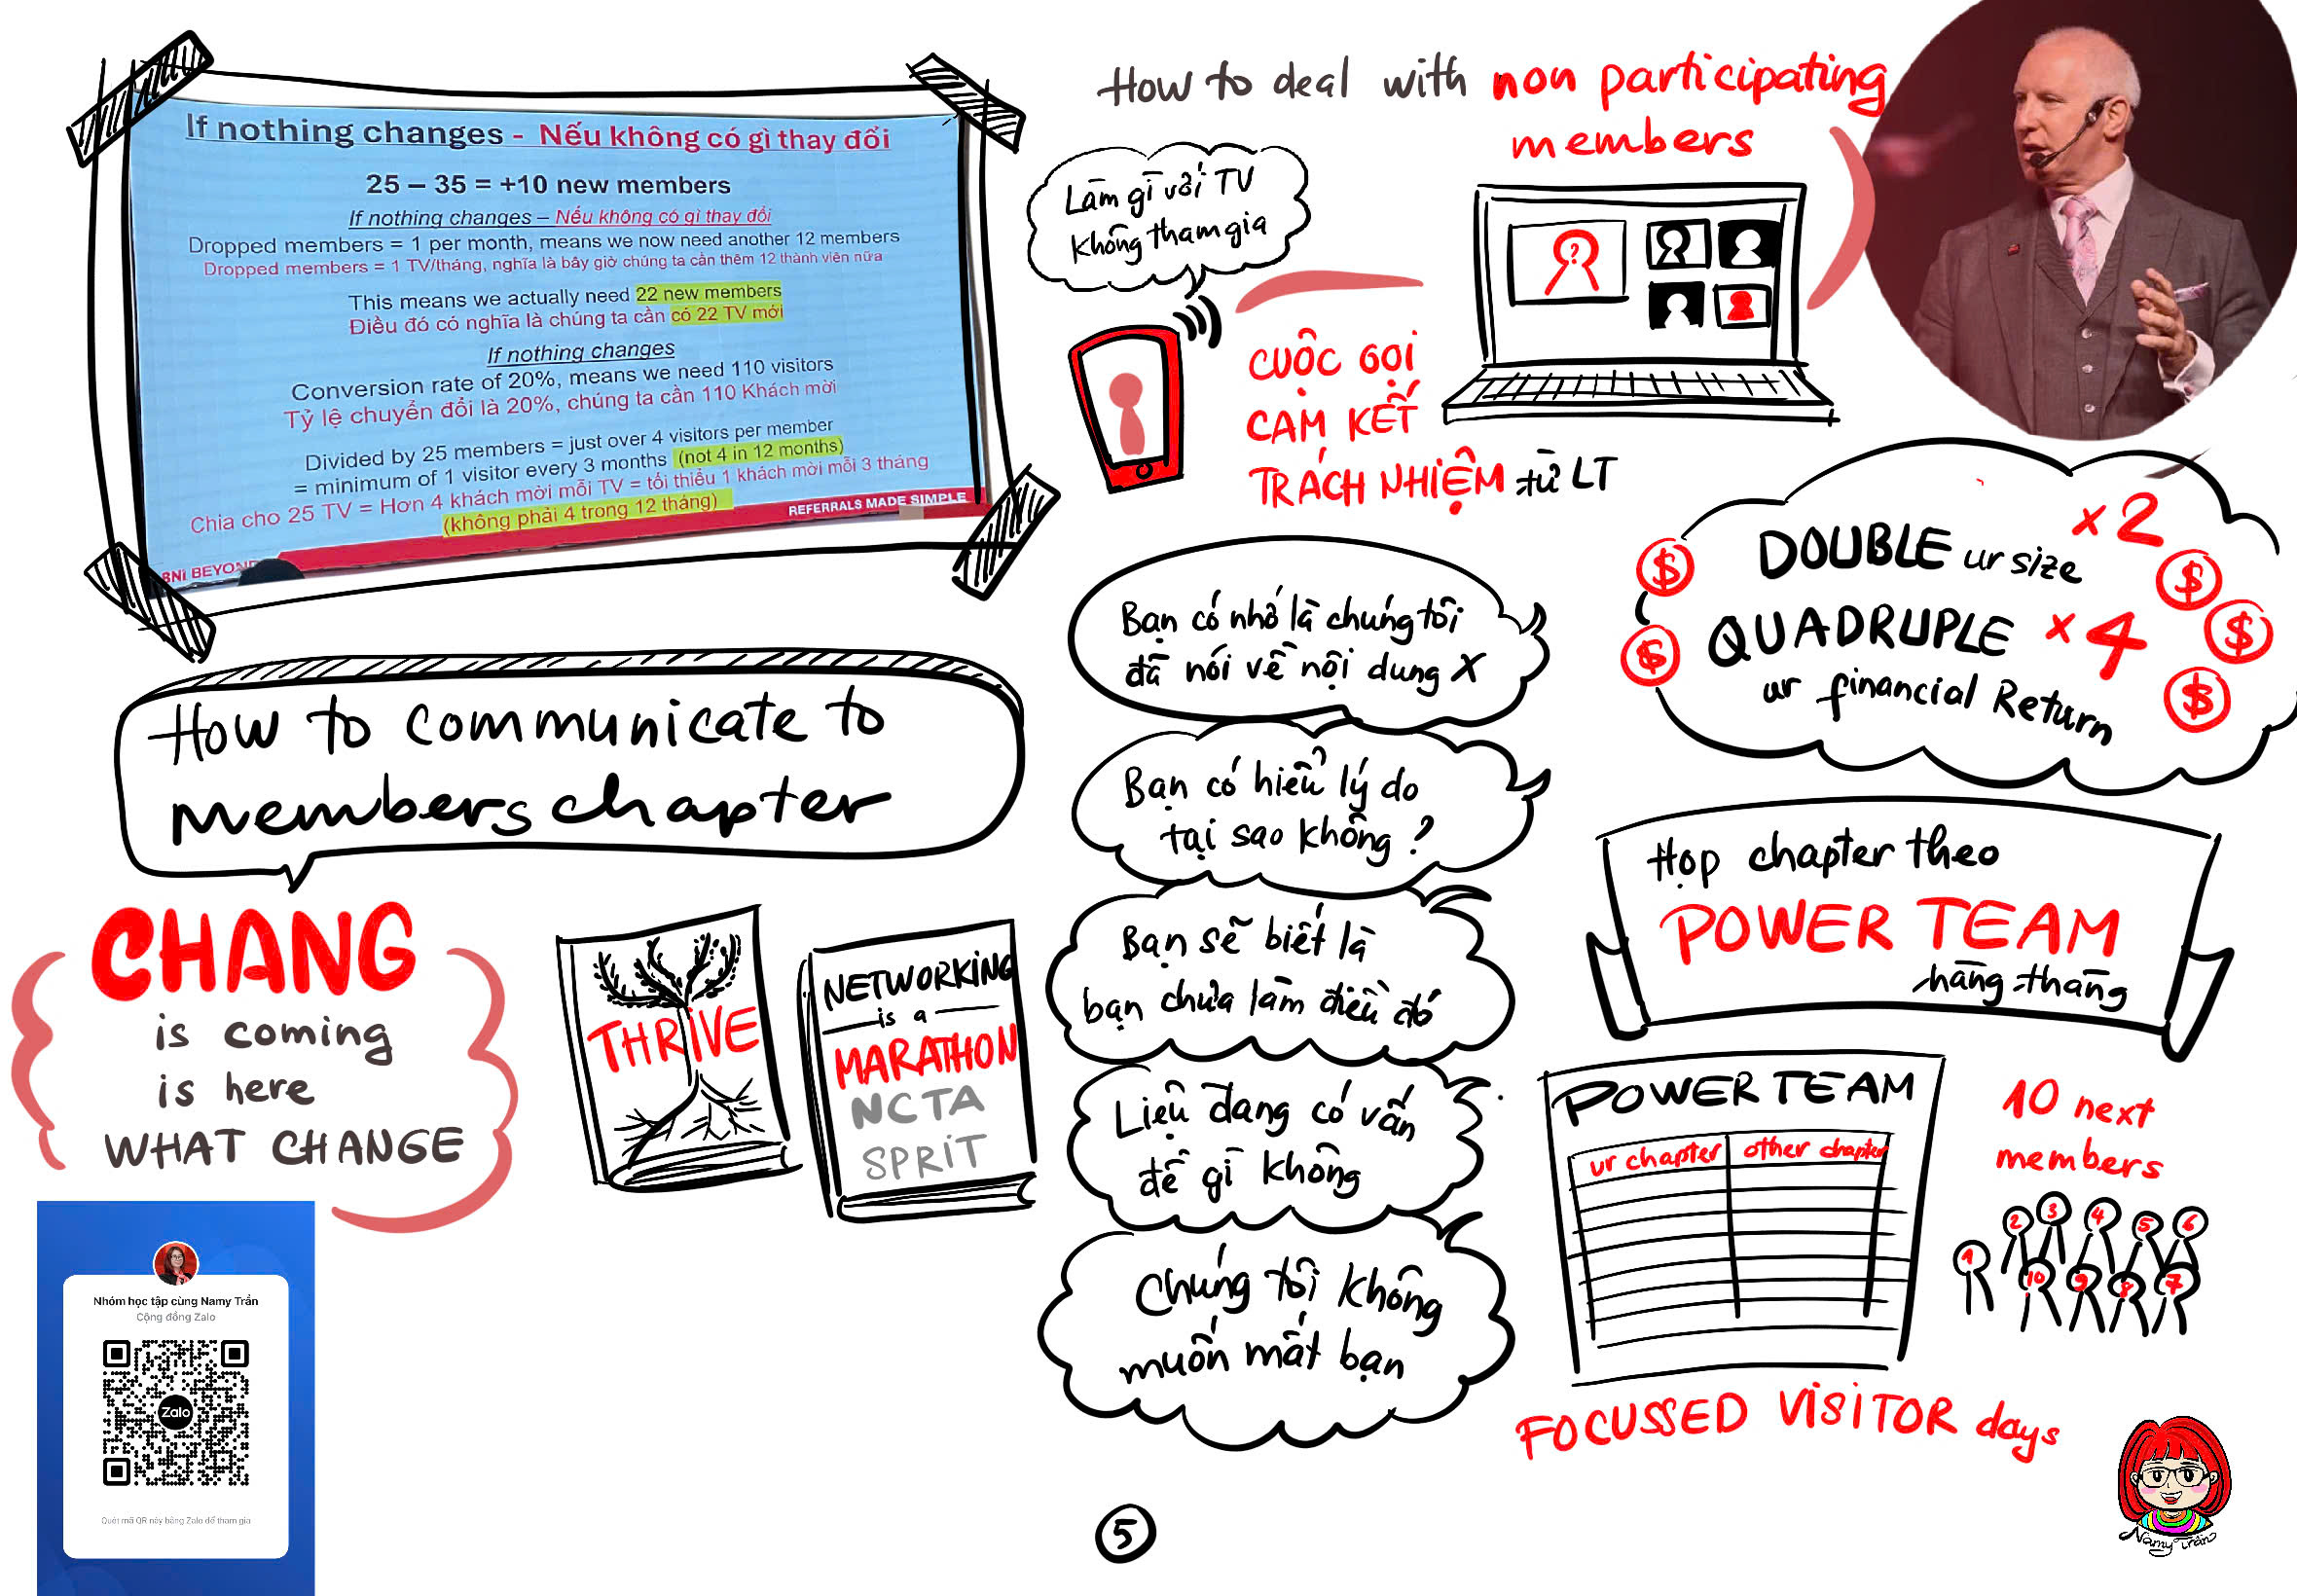 If nothing changes - Nếu không có gì thay đổi
25 – 35 = +10 new members
If nothing changes – Nếu không có gì thay đổi
Dropped members = 1 per month, means we now need another 12 members
Dropped members = 1 TV/tháng, nghĩa là bây giờ chúng ta cần thêm 12 thành viên nữa
This means we actually need 22 new members
Điều đó có nghĩa là chúng ta cần có 22 TV mới
If nothing changes
Conversion rate of 20%, means we need 110 visitors
Tỷ lệ chuyển đổi là 20%, chúng ta cần 110 Khách mời
Divided by 25 members = just over 4 visitors per member
= minimum of 1 visitor every 3 months (not 4 in 12 months)
Chia cho 25 TV = Hơn 4 khách mời mỗi TV = tối thiểu 1 khách mời mỗi 3 tháng
(không phải 4 trong 12 tháng)
REFERRALS MADE SIMPLE
BNI BEYOND
How to communicate to
members chapter
CHANG
is coming
is here
WHAT CHANGE
THRIVE
NETWORKING
is a
MARATHON
NCTA
SPRIT
Nhóm học tập cùng Namy Trần
Cộng đồng Zalo
Zalo
Quét mã QR này bằng Zalo để tham gia
How to deal with non participating
members
Làm gì với TV
không tham gia
?
CUỘC GỌI
CAM KẾT
TRÁCH NHIỆM từ LT
Bạn có nhớ là chúng tôi
đã nói về nội dung X
Bạn có hiểu lý do
tại sao không?
Bạn sẽ biết là
bạn chưa làm điều đó
Liệu đang có vấn
đề gì không
Chúng tôi không
muốn mất bạn
DOUBLE ur size x2
QUADRUPLE x4
ur financial Return
$
$
$
$
$
Họp chapter theo
POWER TEAM
hàng tháng
POWER TEAM
ur chapter other chapter
10 next
members
1 2 3 4 5 6
10 9 8 7
FOCUSSED VISITOR days
Namy Trần
5